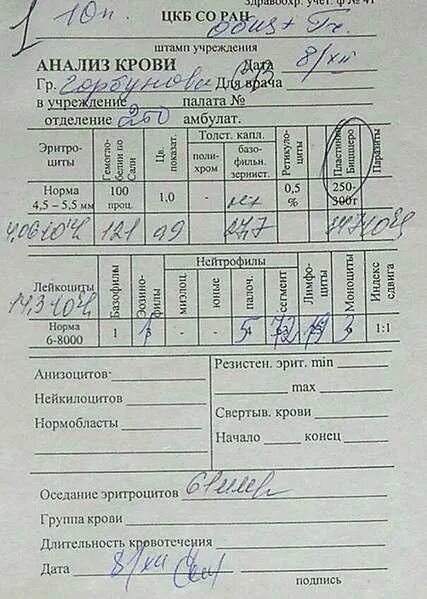 Здравоохр. учет. ф № 41
1 10п. ЦКБ СО РАН
общ +
штамп учреждения
АНАЛИЗ КРОВИ Дата 8/XII
Гр. Горбунова Для врача
в учреждение палата №
отделение амбулат.
Эритроциты Гемоглобелин по Сали Цв. показат. Толст. капл. Ретикулоциты Пластинок Бицшеро Паразиты
полихром базофильн. зернист.
Норма 4,5 – 5,5 мм 100 проц. 1,0 - 0,5 % 250-300т
121 0,9 277
Лейкоциты Базофилы Эозинофилы Нейтрофилы Лимфоциты Моноциты Индекс сдвига
миэлоц. юные палоч. сегмент
14,3·10⁹/л
Норма 6-8000 1 1 - - 5 72 19 3 1:1
Анизоцитов: Резистен. эрит. min
max
Нейкилоцитов
Свертыв. крови
Нормобласты
Начало конец
Оседание эритроцитов 61мм/ч
Группа крови
Длительность кровотечения
Дата 8/XII
подпись